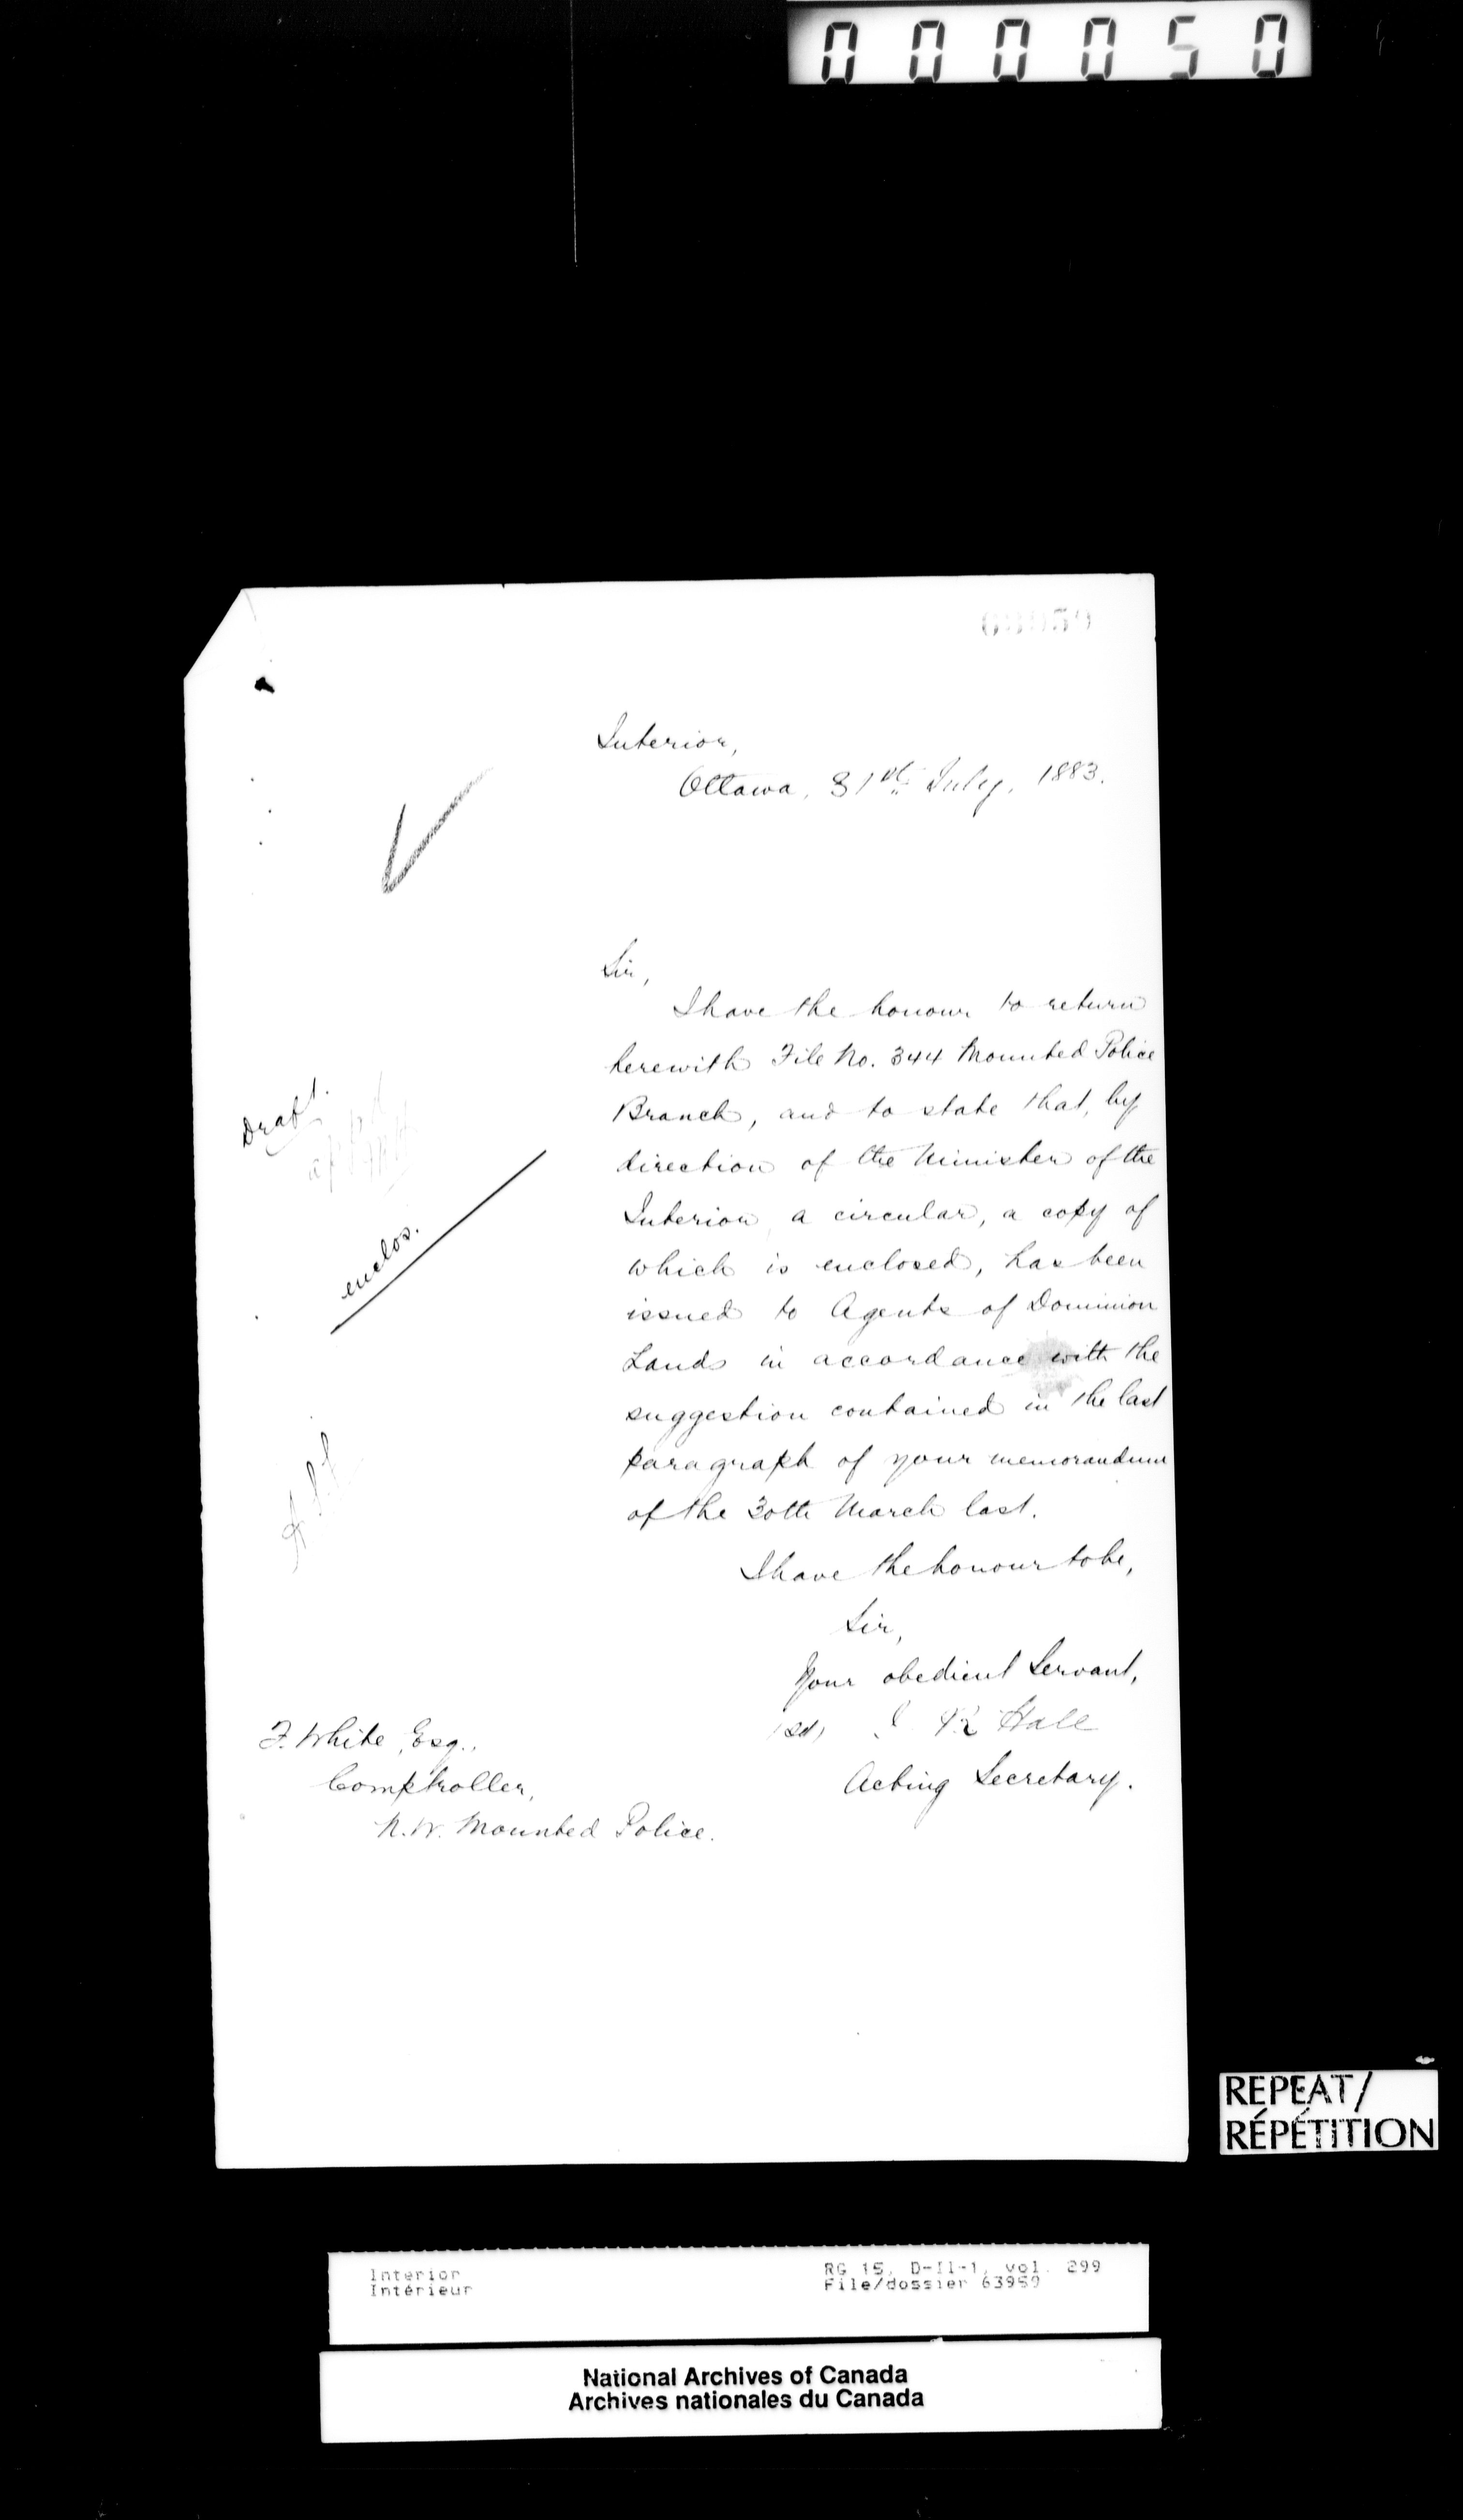 000050
Interior,
Ottawa, 31st July, 1883.
Sir,
I have the honour to return
herewith File No. 344 Mounted Police
Branch, and to state that, by
direction of the Minister of the
Interior, a circular, a copy of
which is enclosed, has been
issued to Agents of Dominion
Lands in accordance with the
suggestion contained in the last
paragraph of your memorandum
of the 30th March last.
I have the honour to be,
Sir,
Your obedient Servant,
(sd) R Hall
Acting Secretary.
Draft.
enclos.
F. White, Esq.,
Comptroller,
N.W. Mounted Police.
REPEAT/
RÉPÉTITION
Interior
Intérieur
RG 15, D-II-1, vol. 299
File/dossier 63959
National Archives of Canada
Archives nationales du Canada